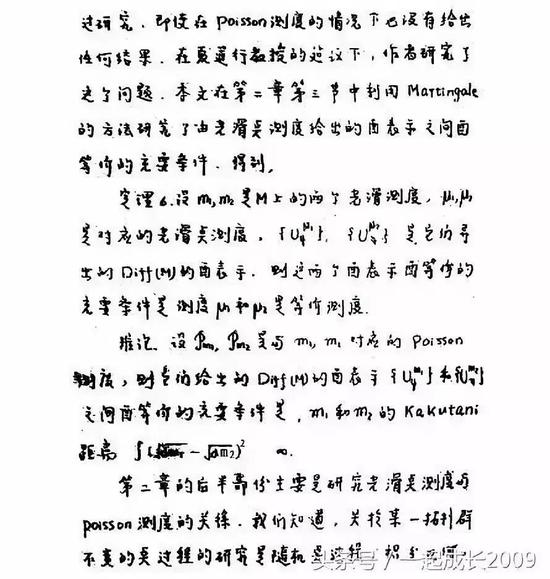 过研究．即使在 Poisson 测度的情况下也没有给出
任何结果．在夏道行教授的建议下，作者研究了
这个问题．本文在第二章第三节中利用 Martingale
的方法研究了由光滑点测度给出的酉表示之间酉
等价的充要条件．得到，
定理6．设 m₁, m₂ 是 M 上的两个光滑测度，μ₁, μ₂
是对应的光滑点测度，{U_ψ^{μ₁}}，{U_ψ^{μ₂}} 是它们导
出的 Diff(M) 的酉表示．则这两个酉表示酉等价的
充要条件是测度 μ₁ 和 μ₂ 是等价测度．
推论．设 P_{m₁}, P_{m₂} 是与 m₁, m₂ 对应的 Poisson
测度，则它们给出的 Diff(M) 的酉表示 {U_ψ^{m₁}} 和 {U_ψ^{m₂}}
之间酉等价的充要条件是，m₁ 和 m₂ 的 Kakutani
距离 ∫(√dm₁ - √dm₂)² ∞．
第二章的后半部份主要是研究光滑点测度与
poisson 测度的关系．我们知道，关于某一拓扑群
不变的点过程的研究是随机点过程
头条号 / 一起成长2009